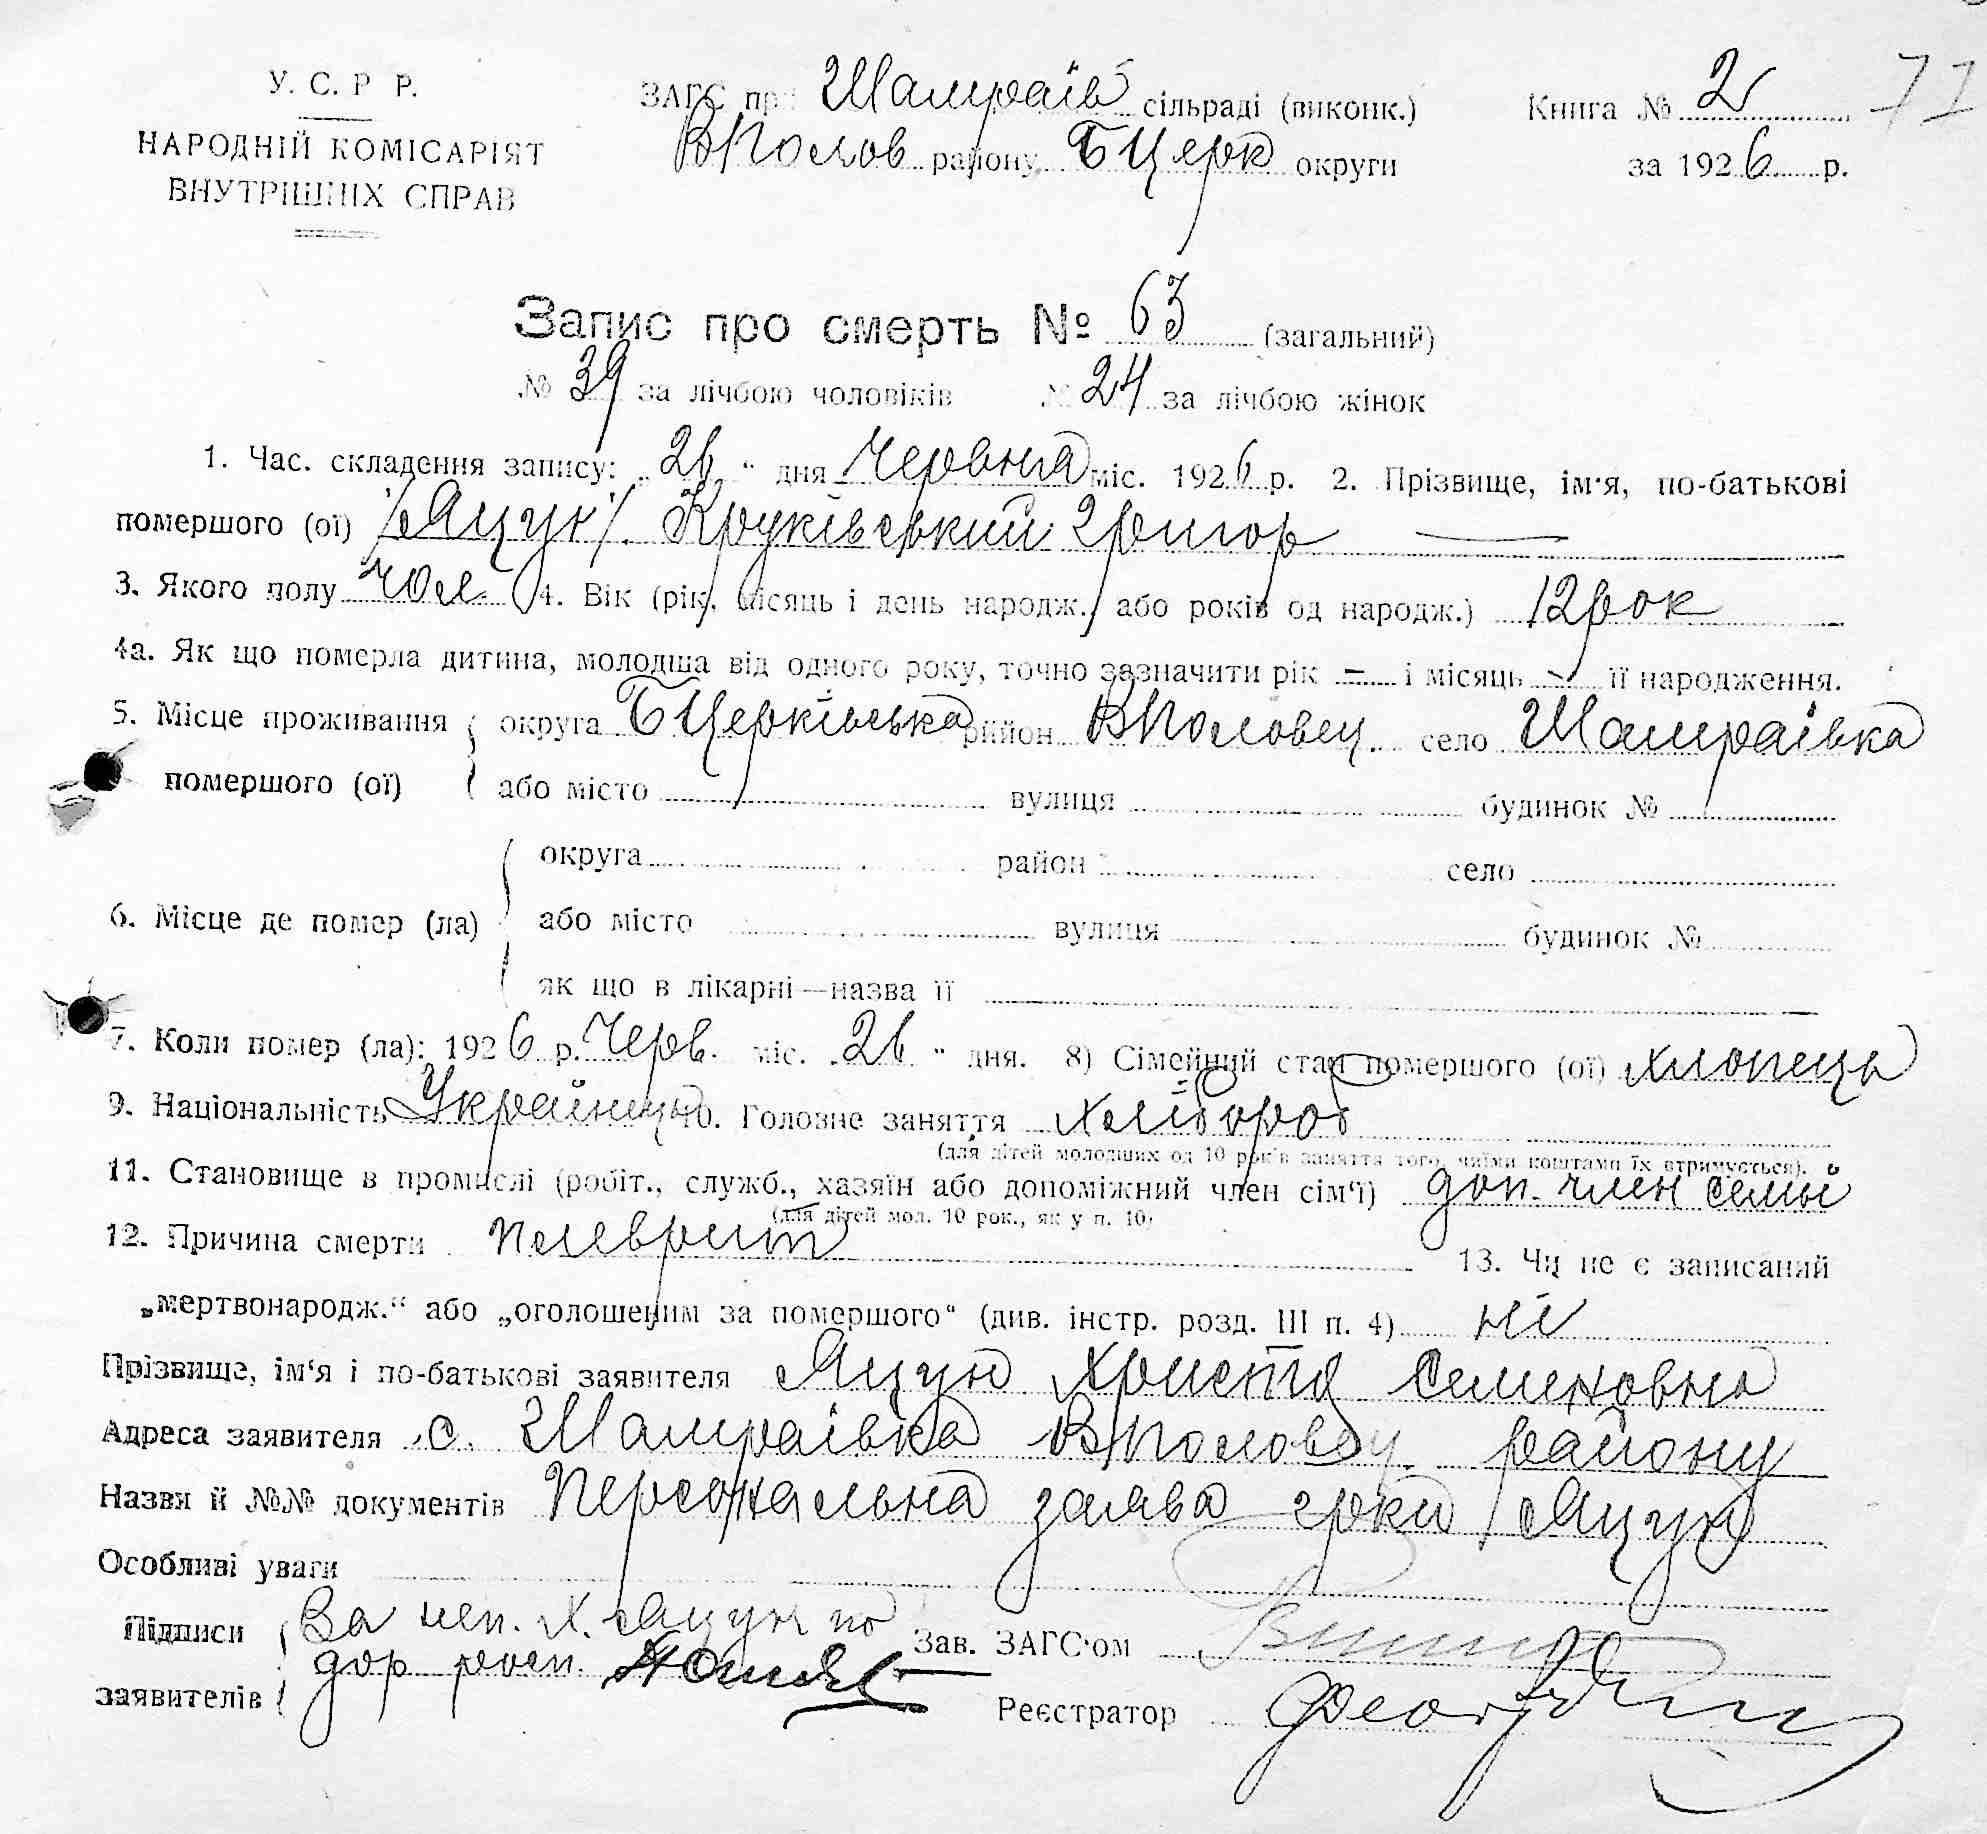 У. С. Р Р.
НАРОДНІЙ КОМІСАРІЯТ
ВНУТРІШНІХ СПРАВ
ЗАГС при Шамраїв сільраді (виконк.)
ВПолов району БЦерк округи
Книга № 2
за 1926 р.
71
Запис про смерть № 63 (загальний)
№ 39 за лічбою чоловіків № 24 за лічбою жінок
1. Час. складення запису: 26 " дня Червня міс. 1926 р. 2. Прізвище, ім'я, по-батькові
помершого (ої) /Яцук/. Круківський Григор —
3. Якого полу чол. 4. Вік (рік, місяць і день народж., або років од народж.) 12 рок
4а. Як що померла дитина, молодша від одного року, точно зазначити рік – і місяць – її народження.
5. Місце проживання помершого (ої)
округа БЦерківська район ВПоловец. село Шамраївка
або місто вулиця будинок №
6. Місце де помер (ла)
округа район село
або місто вулиця будинок №
як що в лікарні—назва її
7. Коли помер (ла): 1926 р. Черв. міс. 26 " дня. 8) Сімейний стан помершого (ої) хлопець
9. Національність Украйнець 10. Головне заняття хлібороб
(для дітей молодших од 10 років заняття того, чиїми коштами їх втримується).
11. Становище в промислі (робіт., служб., хазяїн або допоміжний член сім'ї) доп. член семьї
(для дітей мол. 10 рок., як у п. 10)
12. Причина смерти плеврит 13. Чи не є записаний
„мертвонародж." або „оголошеним за помершого" (див. інстр. розд. III п. 4) ні
Прізвище, ім'я і по-батькові заявителя Яцук Христя Семеновна
Адреса заявителя с. Шамраївка ВПоловец району
Назви й №№ документів Персональна заява грки Яцук
Особливі уваги
Підписи заявителів
За неп. Х. Яцук по
дор росп.
Зав. ЗАГС'ом
Реєстратор